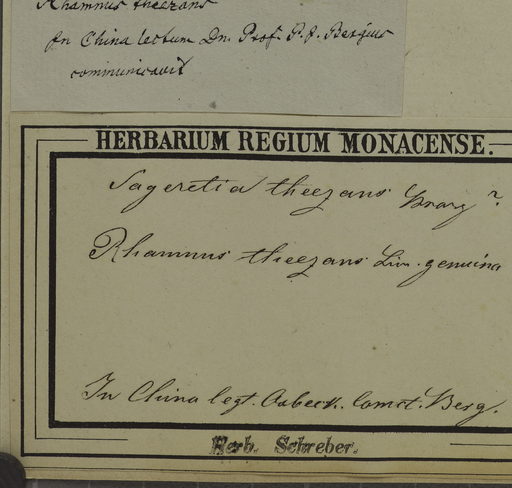 Rhamnus theezans
In China lectum Dn. Prof. P. J. Bergius
communicavit
HERBARIUM REGIUM MONACENSE.
Sageretia theezans Brong ?
Rhamnus theezans Lin. genuina
In China legt. Osbeck. Comct. Berg.
Herb. Schreber.